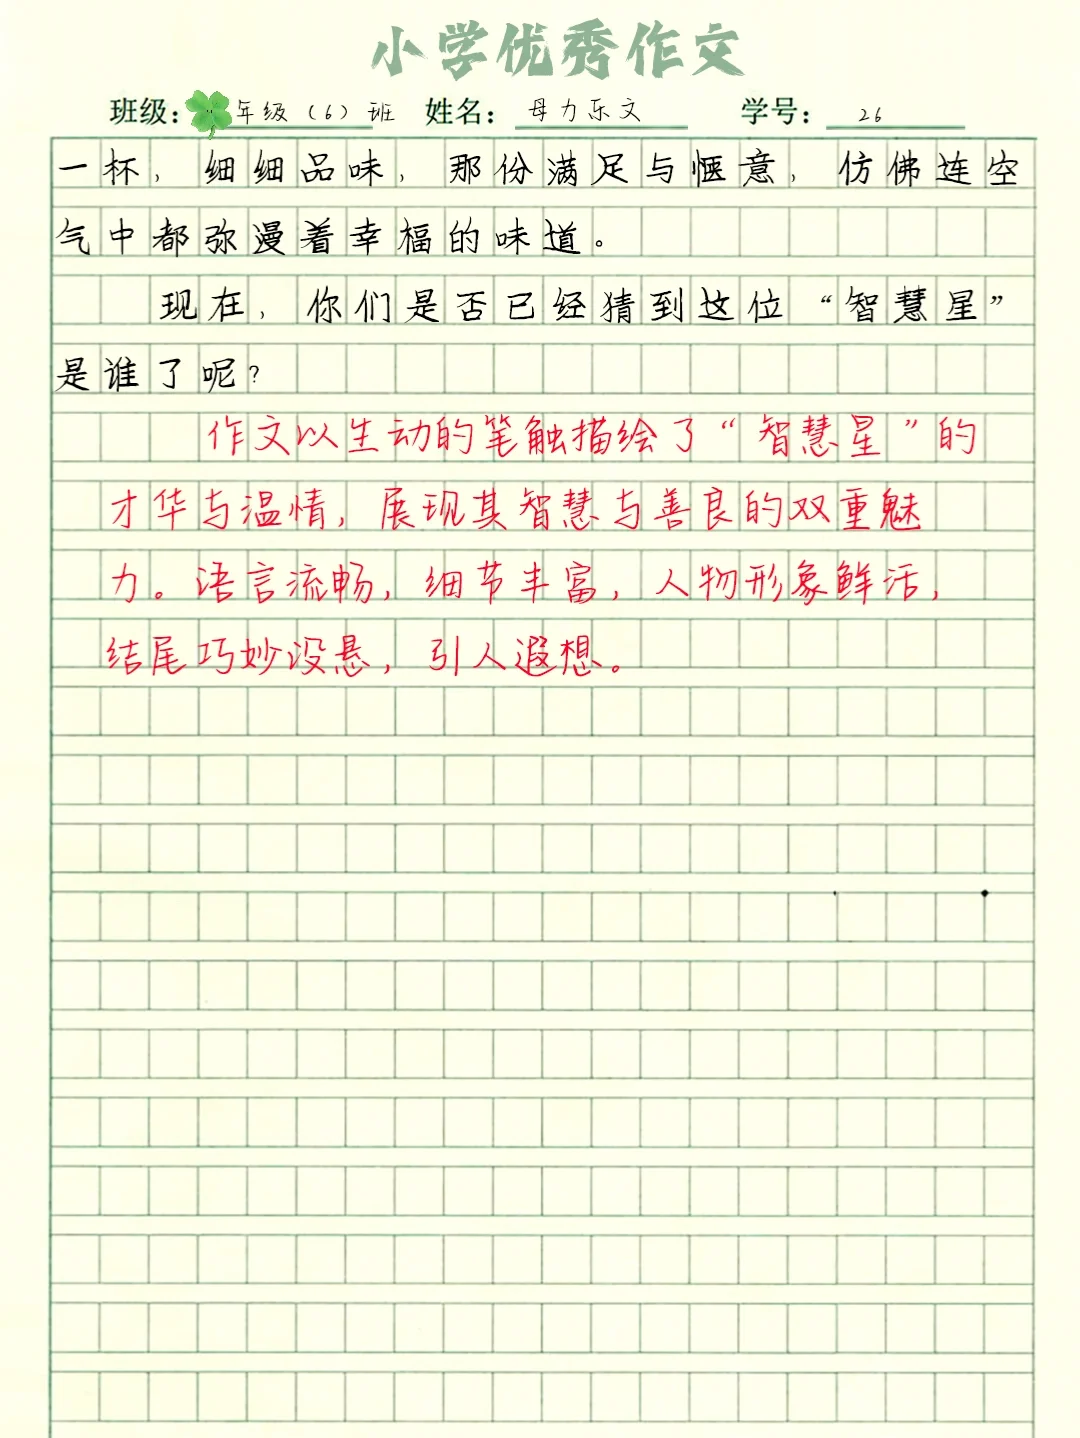 小学优秀作文
班级： 年级（6）班 姓名：母力乐文 学号：26
一杯，细细品味，那份满足与惬意，仿佛连空
气中都弥漫着幸福的味道。
现在，你们是否已经猜到这位“智慧星”
是谁了呢？
作文以生动的笔触描绘了“智慧星”的
才华与温情，展现其智慧与善良的双重魅
力。语言流畅，细节丰富，人物形象鲜活，
结尾巧妙没悬，引人遐想。